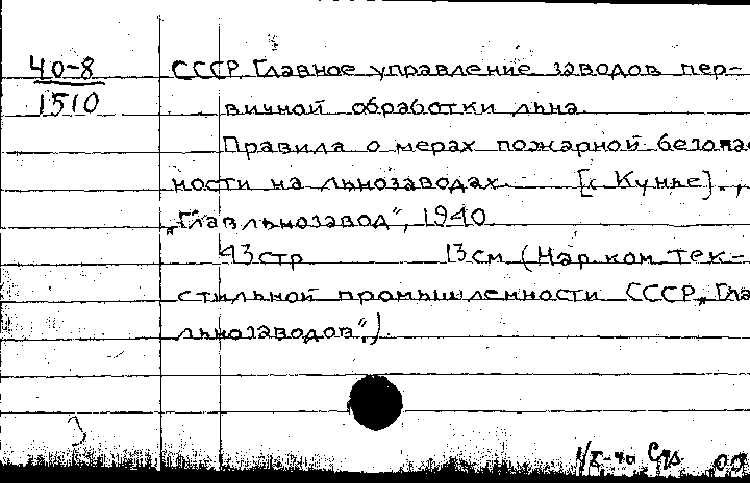 40-8
1510
СССР. Главное управление заводов пер-
вичной обработки льна.
Правила о мерах пожарной безопас
ности на льнозаводах. [с. Кунье].,
„Главльнозавод", 1940
43стр 13см (Нар. ком. тек-
стильной промышленности СССР„ Гла
льнозаводов".)
3